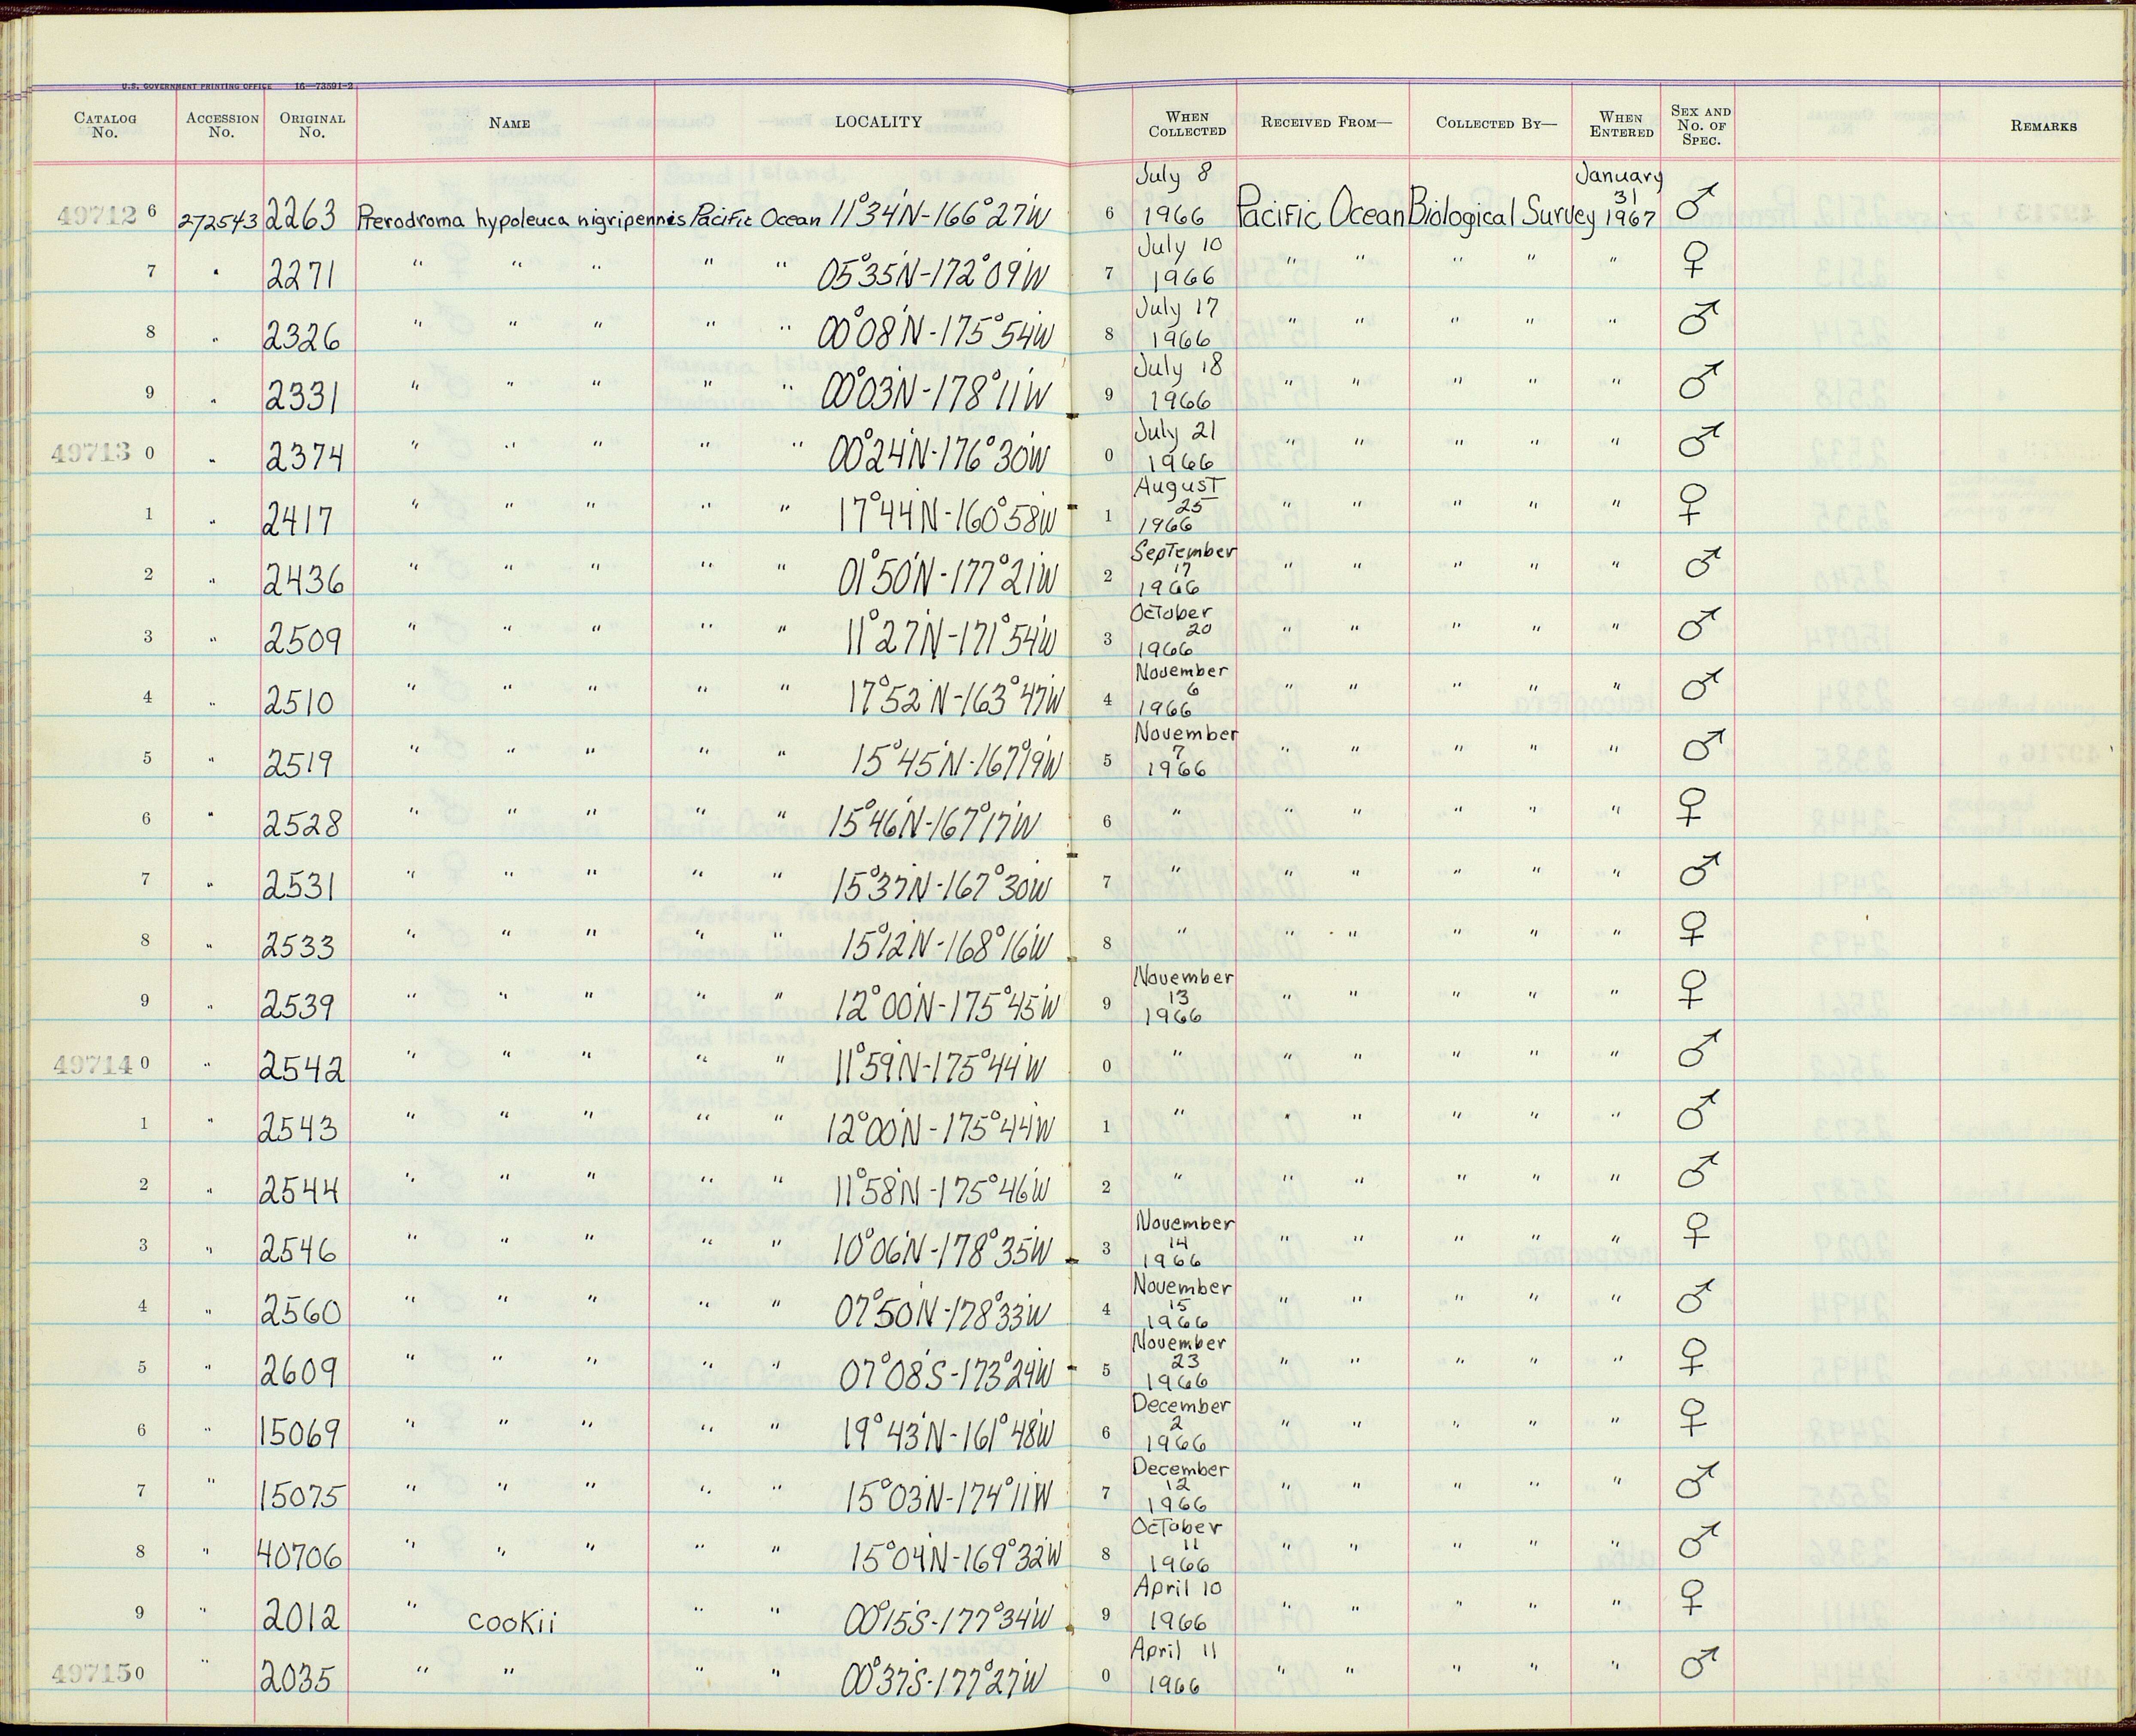 U.S. GOVERNMENT PRINTING OFFICE 16—73591-2
CATALOG No. ACCESSION No. ORIGINAL No. NAME LOCALITY WHEN COLLECTED RECEIVED FROM— COLLECTED BY— WHEN ENTERED SEX AND No. OF SPEC. REMARKS
49712 6 272543 2263 Pterodroma hypoleuca nigripennis Pacific Ocean 11°34'N-166°27'W 6 July 8 1966 Pacific Ocean Biological Survey January 31 1967 ♂
7 " 2271 " " " " " 05°35'N-172°09'W 7 July 10 1966 " " " " " ♀
8 " 2326 " " " " " 00°08'N-175°54'W 8 July 17 1966 " " " " " ♂
9 " 2331 " " " " " 00°03'N-178°11'W 9 July 18 1966 " " " " " ♂
49713 0 " 2374 " " " " " 00°24'N-176°30'W 0 July 21 1966 " " " " " ♂
1 " 2417 " " " " " 17°44'N-160°58'W 1 August 25 1966 " " " " " ♀
2 " 2436 " " " " " 01°50'N-177°21'W 2 September 17 1966 " " " " " ♂
3 " 2509 " " " " " 11°27'N-171°54'W 3 October 20 1966 " " " " " ♂
4 " 2510 " " " " " 17°52'N-163°47'W 4 November 6 1966 " " " " " ♂
5 " 2519 " " " " " 15°45'N-167°19'W 5 November 7 1966 " " " " " ♂
6 " 2528 " " " " " 15°46'N-167°17'W 6 " " " " " " ♀
7 " 2531 " " " " " 15°37'N-167°30'W 7 " " " " " " ♂
8 " 2533 " " " " " 15°12'N-168°16'W 8 " " " " " " ♀
9 " 2539 " " " " " 12°00'N-175°45'W 9 November 13 1966 " " " " " ♀
49714 0 " 2542 " " " " " 11°59'N-175°44'W 0 " " " " " " ♂
1 " 2543 " " " " " 12°00'N-175°44'W 1 " " " " " " ♂
2 " 2544 " " " " " 11°58'N-175°46'W 2 " " " " " " ♂
3 " 2546 " " " " " 10°06'N-178°35'W 3 November 14 1966 " " " " " ♀
4 " 2560 " " " " " 07°50'N-178°33'W 4 November 15 1966 " " " " " ♂
5 " 2609 " " " " " 07°08'S-173°24'W 5 November 23 1966 " " " " " ♀
6 " 15069 " " " " " 19°43'N-161°48'W 6 December 2 1966 " " " " " ♀
7 " 15075 " " " " " 15°03'N-174°11'W 7 December 12 1966 " " " " " ♂
8 " 40706 " " " " " 15°04'N-169°32'W 8 October 11 1966 " " " " " ♂
9 " 2012 " cookii " " 00°15'S-177°34'W 9 April 10 1966 " " " " " ♀
49715 0 " 2035 " " " " 00°37'S-177°27'W 0 April 11 1966 " " " " " ♂